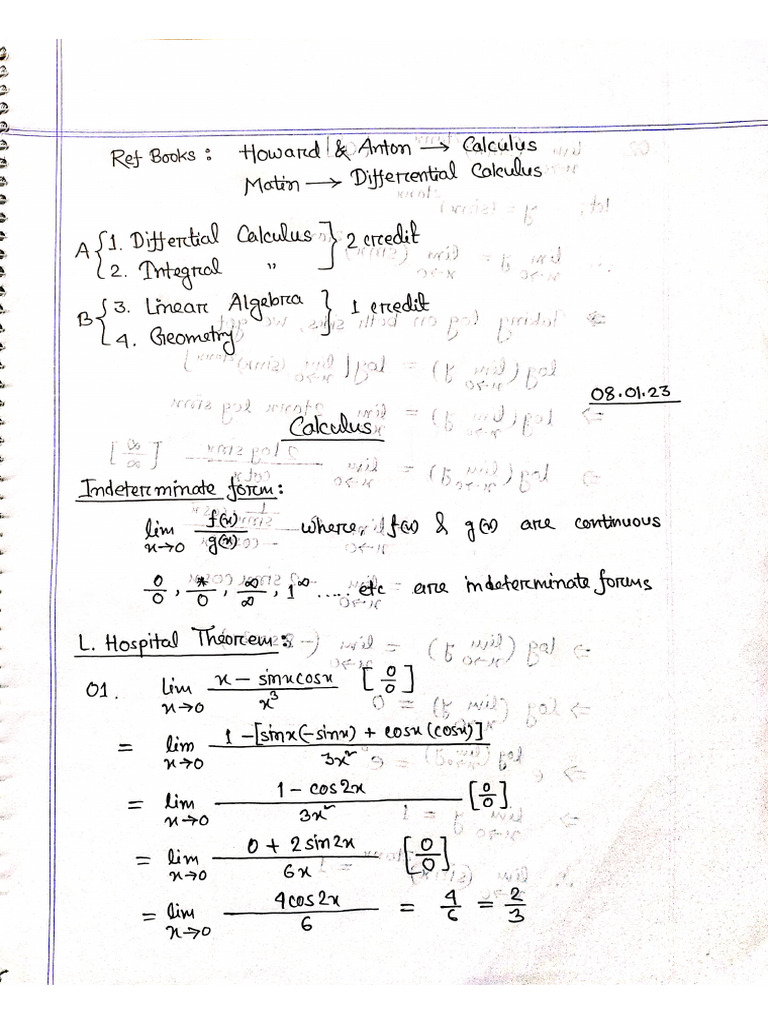 Ref Books: Howard & Anton → Calculus
Matin → Differential Calculus
A { 1. Diffential Calculus
2. Integral " } 2 credit
B { 3. Linear Algebra
4. Geometry } 1 credit
08.01.23
Calculus
Indeterminate form:
lim x→0 f(x)/g(x) where, f(x) & g(x) are continuous
0/0, */0, ∞/∞, 1^∞ ..... etc are indeterminate forms
L. Hospital Theorem:
01. lim x→0 (x - sinx cosx)/x³ [0/0]
= lim x→0 (1 - [sinx(-sinx) + cosx(cosx)])/3x²
= lim x→0 (1 - cos2x)/3x² [0/0]
= lim x→0 (0 + 2sin2x)/6x [0/0]
= lim x→0 4cos2x/6 = 4/6 = 2/3